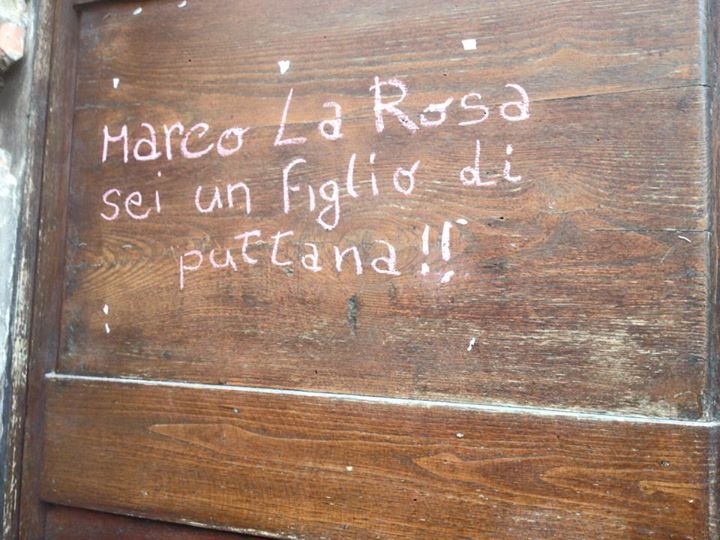 Marco La Rosa
sei un figlio di
puttana!!